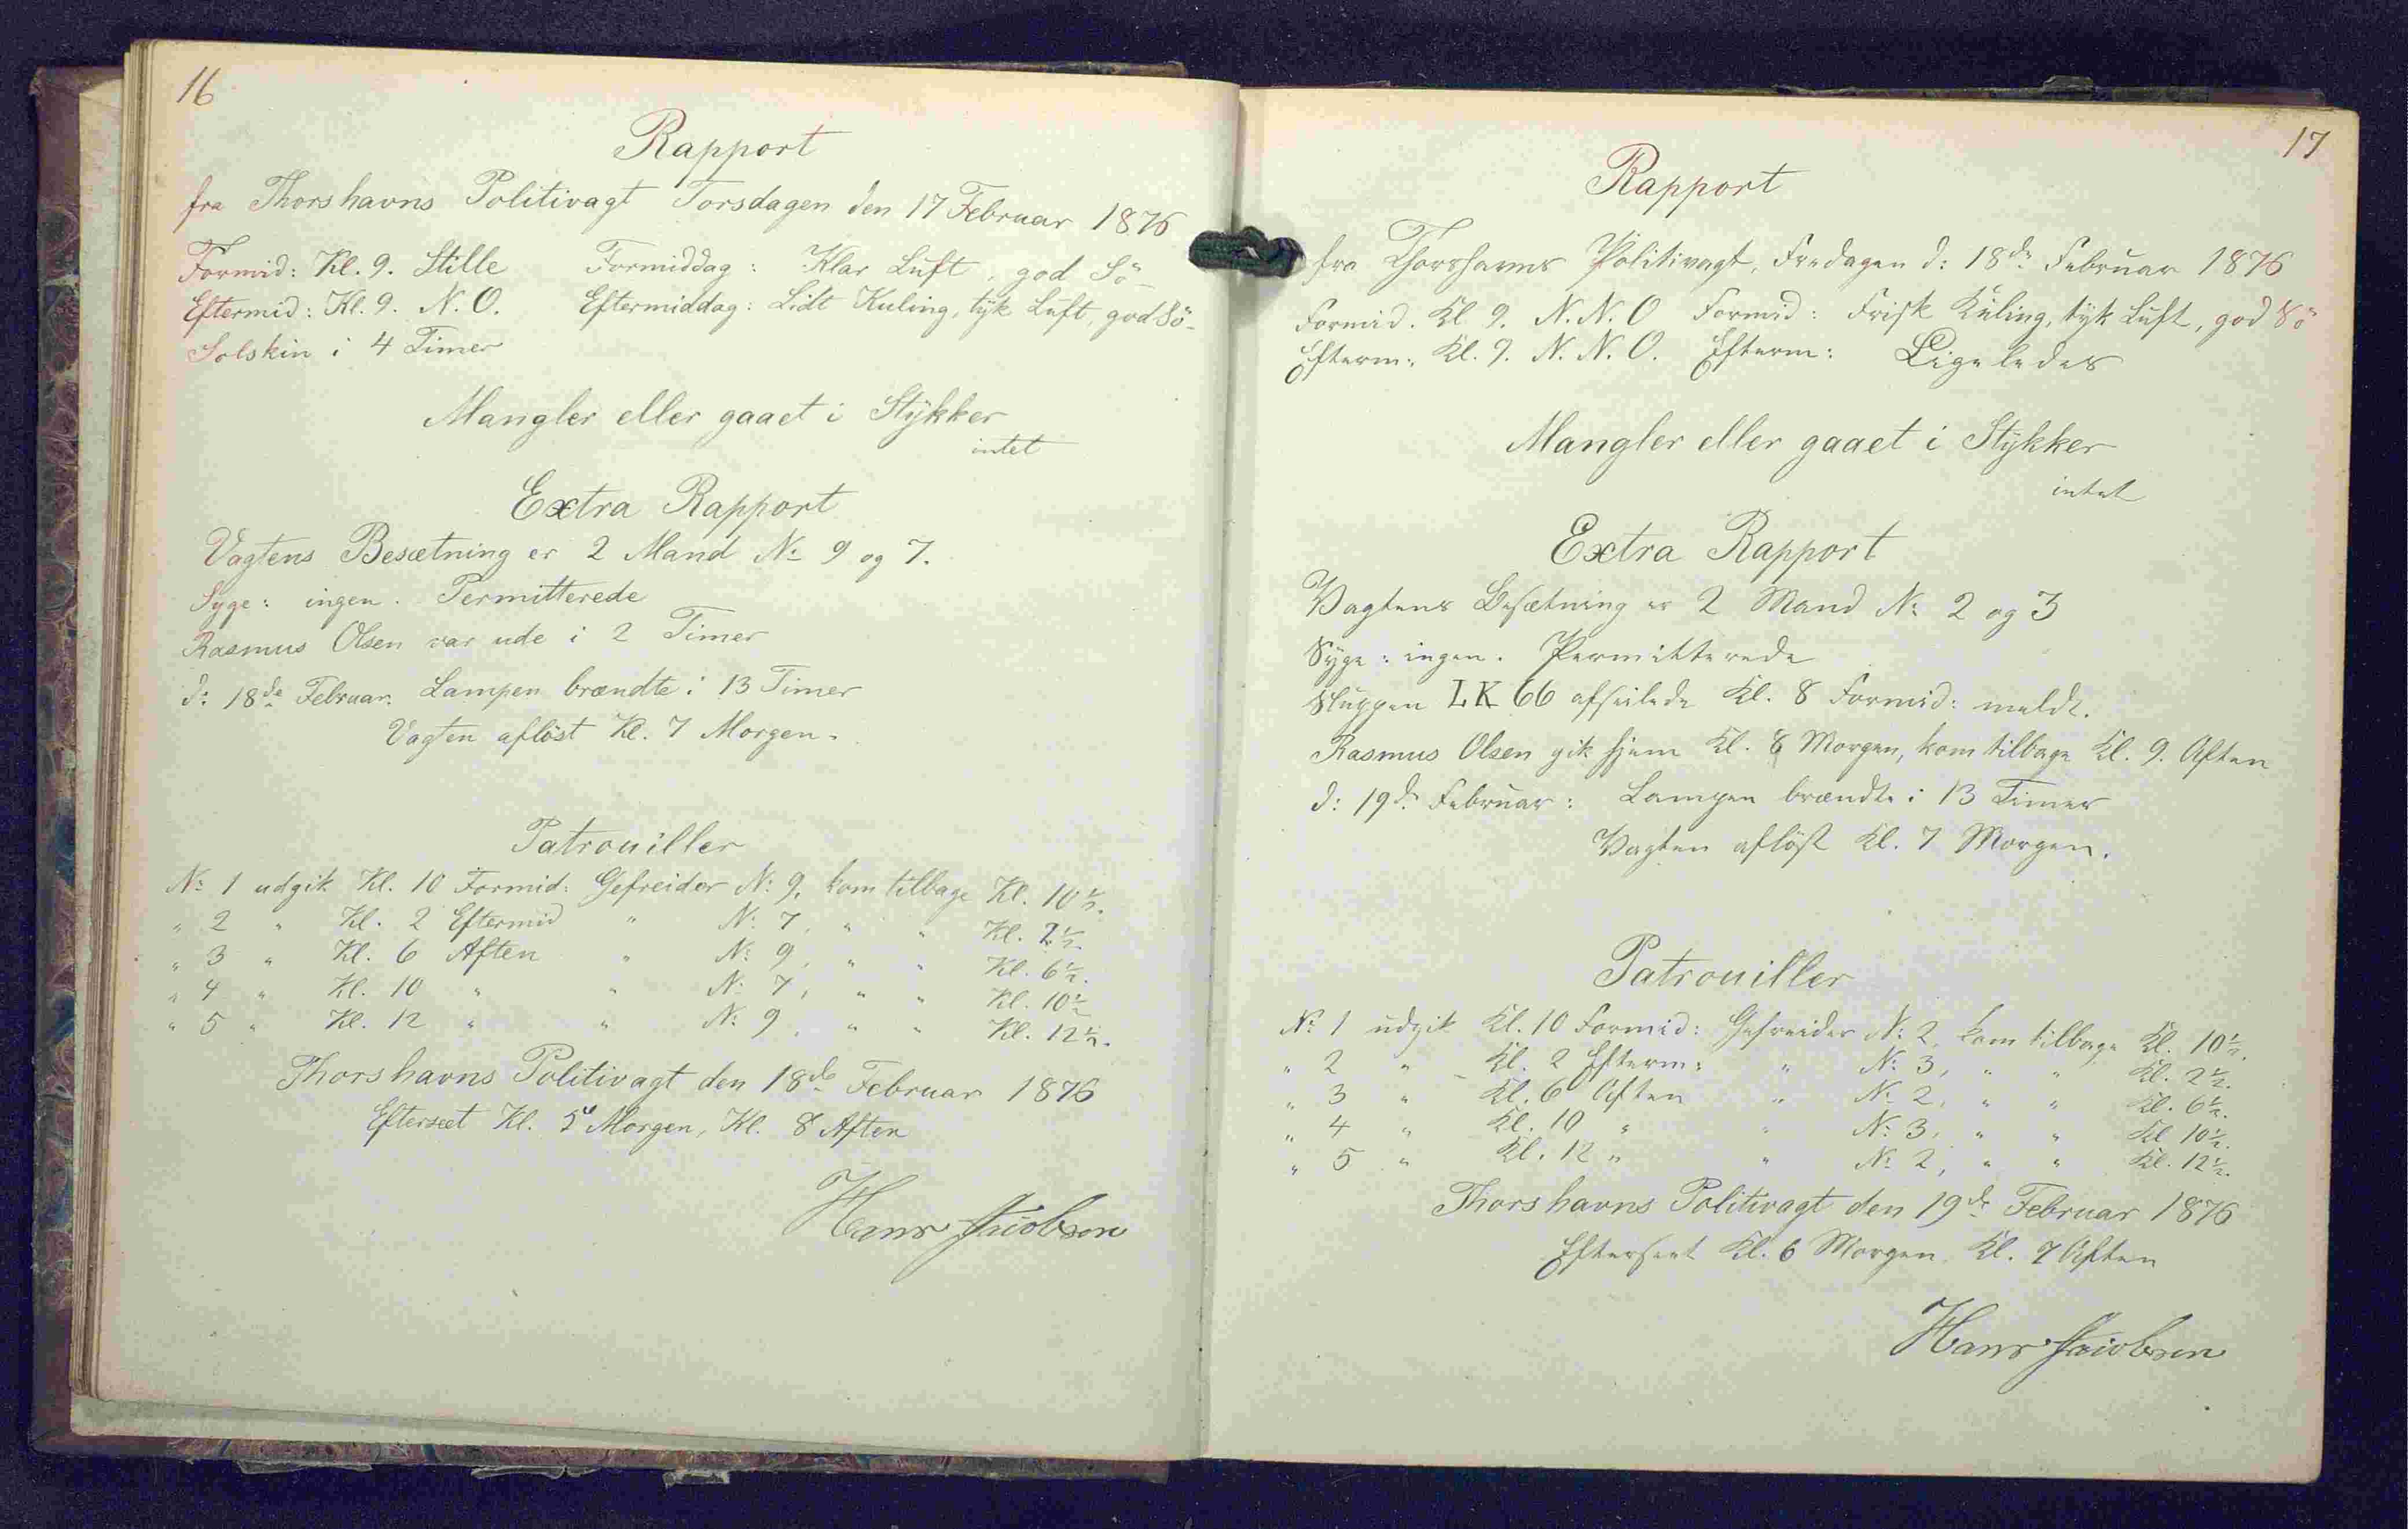 16
Rapport
fra Thorshavns Politivagt Torsdagen den 17 Februar 1876
Formid: Kl. 9. Stille Formiddag: Klar Luft, god Sö
Eftermid: Kl. 9. N. O. Eftermiddag: Lidt Kuling, tyk Luft, god Sö
Solskin i 4 Timer
Mangler eller gaaet i Stykker
intet
Extra Rapport
Vagtens Besætning er 2 Mand No 9 og 7.
Syge: ingen. Permitterede
Rasmus Olsen var ude i 2 Timer
d: 18de Februar. Lampen brændte i 13 Timer
Vagten aflöst Kl. 7 Morgen.
Patrouiller
No 1 udgik Kl. 10 Formid: Gefreider No 9, kom tilbage Kl. 10½.
" 2 " Kl. 2 Eftermid " No 7, " " Kl. 2½.
" 3 " Kl. 6 Aften " No 9, " " Kl. 6½.
" 4 " Kl. 10 " " No 7, " " Kl. 10½
" 5 " Kl. 12 " " No 9, " " Kl. 12½.
Thorshavns Politivagt den 18de Februar 1876
Efterseet Kl. 5 Morgen, Kl. 8 Aften
Hans Jacobsen
17
Rapport
fra Thorshavns Politivagt, Fredagen d: 18de Februar 1876
Formid. Kl 9. N. N. O Formid: Frisk Kuling, tyk Luft, god Sö
Efterm: Kl. 9. N. N. O. Efterm: Ligeledes
Mangler eller gaaet i Stykker
intet
Extra Rapport
Vagtens Besætning er 2 Mand No 2 og 3
Syge: ingen. Permitterede
Sluppen LK 66 afseilede Kl. 8 Formid: meldt.
Rasmus Olsen gik hjem Kl. 8 Morgen, kom tilbage Kl. 9. Aften
d: 19de Februar: Lampen brændte i 13 Timer
Vagten aflöst Kl. 7 Morgen.
Patrouiller
No 1 udgik Kl. 10 Formid: Gefreider No 2, kom tilbage Kl. 10½.
" 2 " Kl. 2 Efterm: " No 3, " " Kl. 2½.
" 3 " Kl. 6 Aften " No 2, " " Kl. 6½.
" 4 " Kl. 10 " " No 3, " " Kl 10½.
" 5 " Kl. 12 " " No 2, " " Kl. 12½.
Thorshavns Politivagt den 19de Februar 1876
Efterseet Kl. 6 Morgen. Kl. 7 Aften
Hans Jacobsen